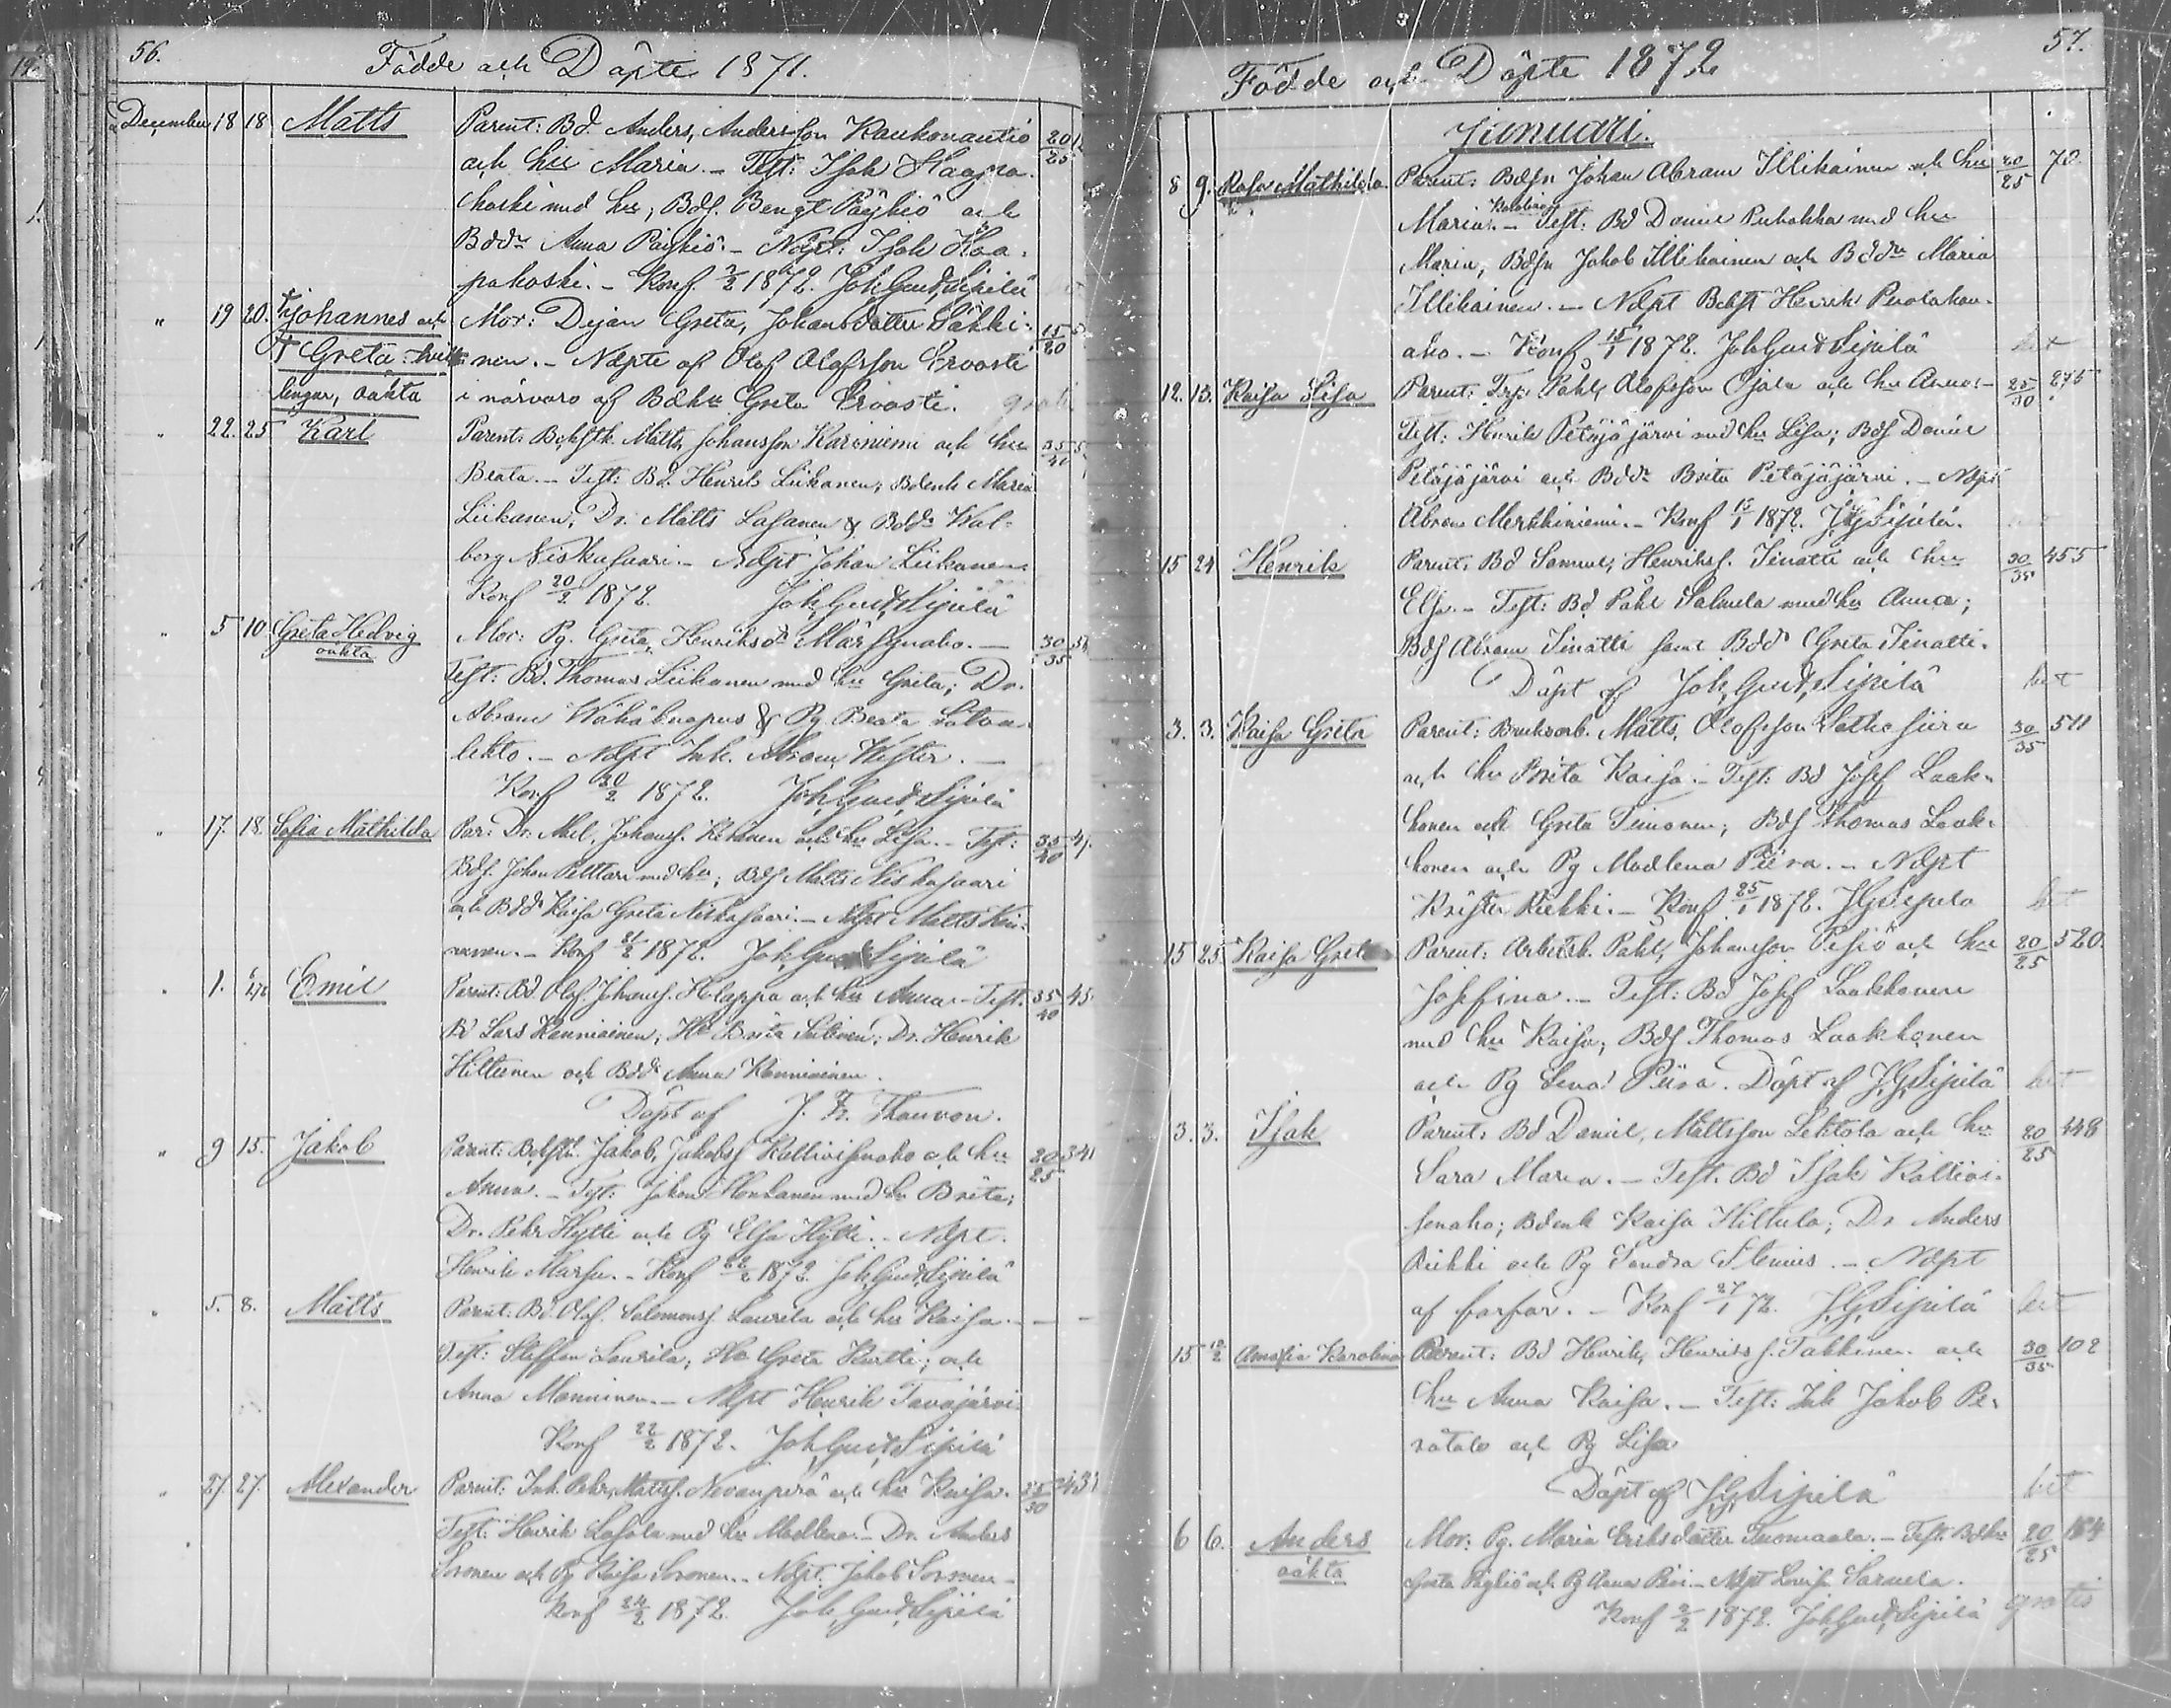 56.
Födde och Döpte 1871.
December 18 18 Matts Parent: Bd. Anders, Andersson Kaukonautio 20/25
och hu Maria. - Test: Isak Haapa-
koski med hu; Bds. Bengt Päykiö och
Bddr Anna Päykiö. - Nödpt: Isak Haa-
pakoski. - Konf 2/2 1872. Joh Gust Sipilä
" 19 20. † Johannes och Mor: Dejan Greta, Johansdotter Säkki- 15/20
† Greta tvil- nen. - Nöpte af Olof Olofsson Ervasti
lingar, oäkta i närvaro af Bdhu Greta Ervasti. gratis
" 22. 25 Karl Parent: Matts, Johansson Karoniemi och hu 35/40
Beata. - Test: Bd. Henrik Liikanen; Bdenk Maria
Liikanen, Dr. Matts Lasanen & Bddr Wal-
borg Niskasaari. - Nödpt Johan Liikanen
Konf 20/2 1872. Joh Gust Sipilä
" 5 10 Greta Hedvig Mor: Pg. Greta, Henriksdr Märsynaho. - 30/35
oäkta
Test: Bd. Thomas Liikanen med hu Greta; Dr.
Abram & Pg. Beata
- Nödpt Inh. Abram Wester. -
Konf 20/2 1872. Joh Gust Sipilä
" 17. 18. Sofia Mathilda Par: Dr. Mel, Johanss. och hu Lisa. - Test: 35/40
Bds. Johan med hu; Bds Matts Niskasaari
och Bddr Kaisa Greta Niskasaari. - Nödpt Matts
Konf 21/2 1872. Joh Gust Sipilä
" 1. Emil Parent: Bd Olof, Johanss. Holappa och hu Anna. - Test: 35/40 45
Bd Lars Kanniainen; Hu Brita; Dr. Henrik
Hiltunen och Bddr Anna Kanniainen.
Döpt af J. Fr. Thauvon.
" 9 15. Jakob Parent: Jakob, Jakobss och hu 20/25 341
Anna. - Test: Johan Honkanen med hu Brita;
Dr. Pehr Hytti och Pg Elsa Hytti. - Nödpt.
Henrik - Konf 22/2 1872. Joh Gust Sipilä
" 5. 8. Matts Parent: Bd. Olof, Salomonss. Laurila och hu Kaisa. - -
Test: Steffan Laurila; Hu Greta Kurtti; och
Anna Manninen. - Nödpt Henrik Tavajärvi
Konf 22/2 1872. Joh Gust Sipilä
" 27. 27. Alexander Parent: Inh. Pehr, Mattss. Nevanperä och hu Kaisa. 25/30 431
Test: Henrik Lasola med hu Madlena. - Dr. Anders
Soronen och Pg Kaisa Soronen. - Nödpt. Jakob Soronen -
Konf 24/2 1872. Joh Gust Sipilä
57.
Födde och Döpte 1872
Januari.
8 9. Rosa Mathilda Parent: Bdsn Johan Abram Illikainen och hu 20/25 70
Maria. - Test: Bd Daniel Pubakka med hu
Maria, Bdsn Jakob Illikainen och Bddr Maria
Illikainen. - Nödpt Henrik Puolakan-
aho. - Konf 15/1 1872. Joh Gust Sipilä bet
12. 13. Kaisa Lisa Parent: Påhl, Olofsson Ojala och hu Anna. - 25/30 275
Test: Henrik Petäjäjärvi med hu Lisa; Bds Daniel
Petäjäjärvi och Bddr Brita Petäjäjärvi. - Nödpt
Abram Merkkiniemi. - Konf 15/1 1872. J G Sipilä.
15 24 Henrik Parent: Bd Samuel, Henrikss. Tinatti och hu 30/35 455
Elsa. - Test: Bd Påhl Salmela med hu Anna;
Bds Abram Tinatti samt Bddr Greta Tinatti.
Döpt af Joh Gust Sipilä bet
3. 3. Kaisa Greta Parent: Bruksarb. Matts, Olofsson 30/35 511
och hu Brita Kaisa. - Test: Bd Josef Laak-
konen och Greta Timonen; Bds Thomas Laak-
konen och Pg Madlena Piira. - Nödpt
Krister Riekki. - Konf 25/1 1872. J G Sipilä bet
15 25 Kaisa Greta Parent: Arbetsk. Påhl, Johansson och hu 20/25 520.
Josefina. - Test: Bd Josef Laakkonen
med hu Kaisa; Bds Thomas Laakkonen
och Pg Lena Piira. Döpt af J G Sipilä bet
3. 3. Isak Parent: Bd Daniel, Mattsson Lehtola och hu 20/25 448
Sara Maria. - Test. Bd Isak Kallioi-
senaho; Bdenk Kaisa Hiltula; Dr Anders
Riekki och Pg Sandra Stenius. - Nödpt
af farfar. - Konf 27/1 72. J G Sipilä bet
15 12/2 Amalia Karolina Parent: Bd Henrik, Henrikss. Takkinen och 30/35 102
hu Anna Kaisa. - Test: Inh Jakob Pe-
rätalo och Pg Lisa
Döpt af J G Sipilä bet
6 6. Anders Mor: Pg. Maria Eriksdotter Tuomaala. - Test. Bdhu 20/25 184
oäkta Greta och Pg Anna - Nödpt Lovisa Sarvela.
Konf 2/2 1872. Joh Gust Sipilä gratis